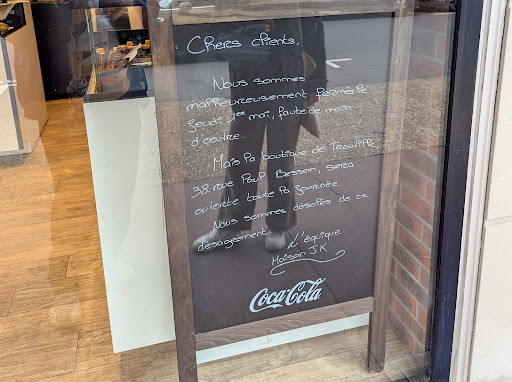 Chers clients,
Nous sommes
malheureusement fermés le
jeudi 1er mai, faute de main
d'œuvre.
Mais la boutique de Trouville,
38 rue Paul Besson, sera
ouverte toute la journée
Nous sommes désolés de ce
désagrément.
L'équipe
Maison J.K
Coca-Cola